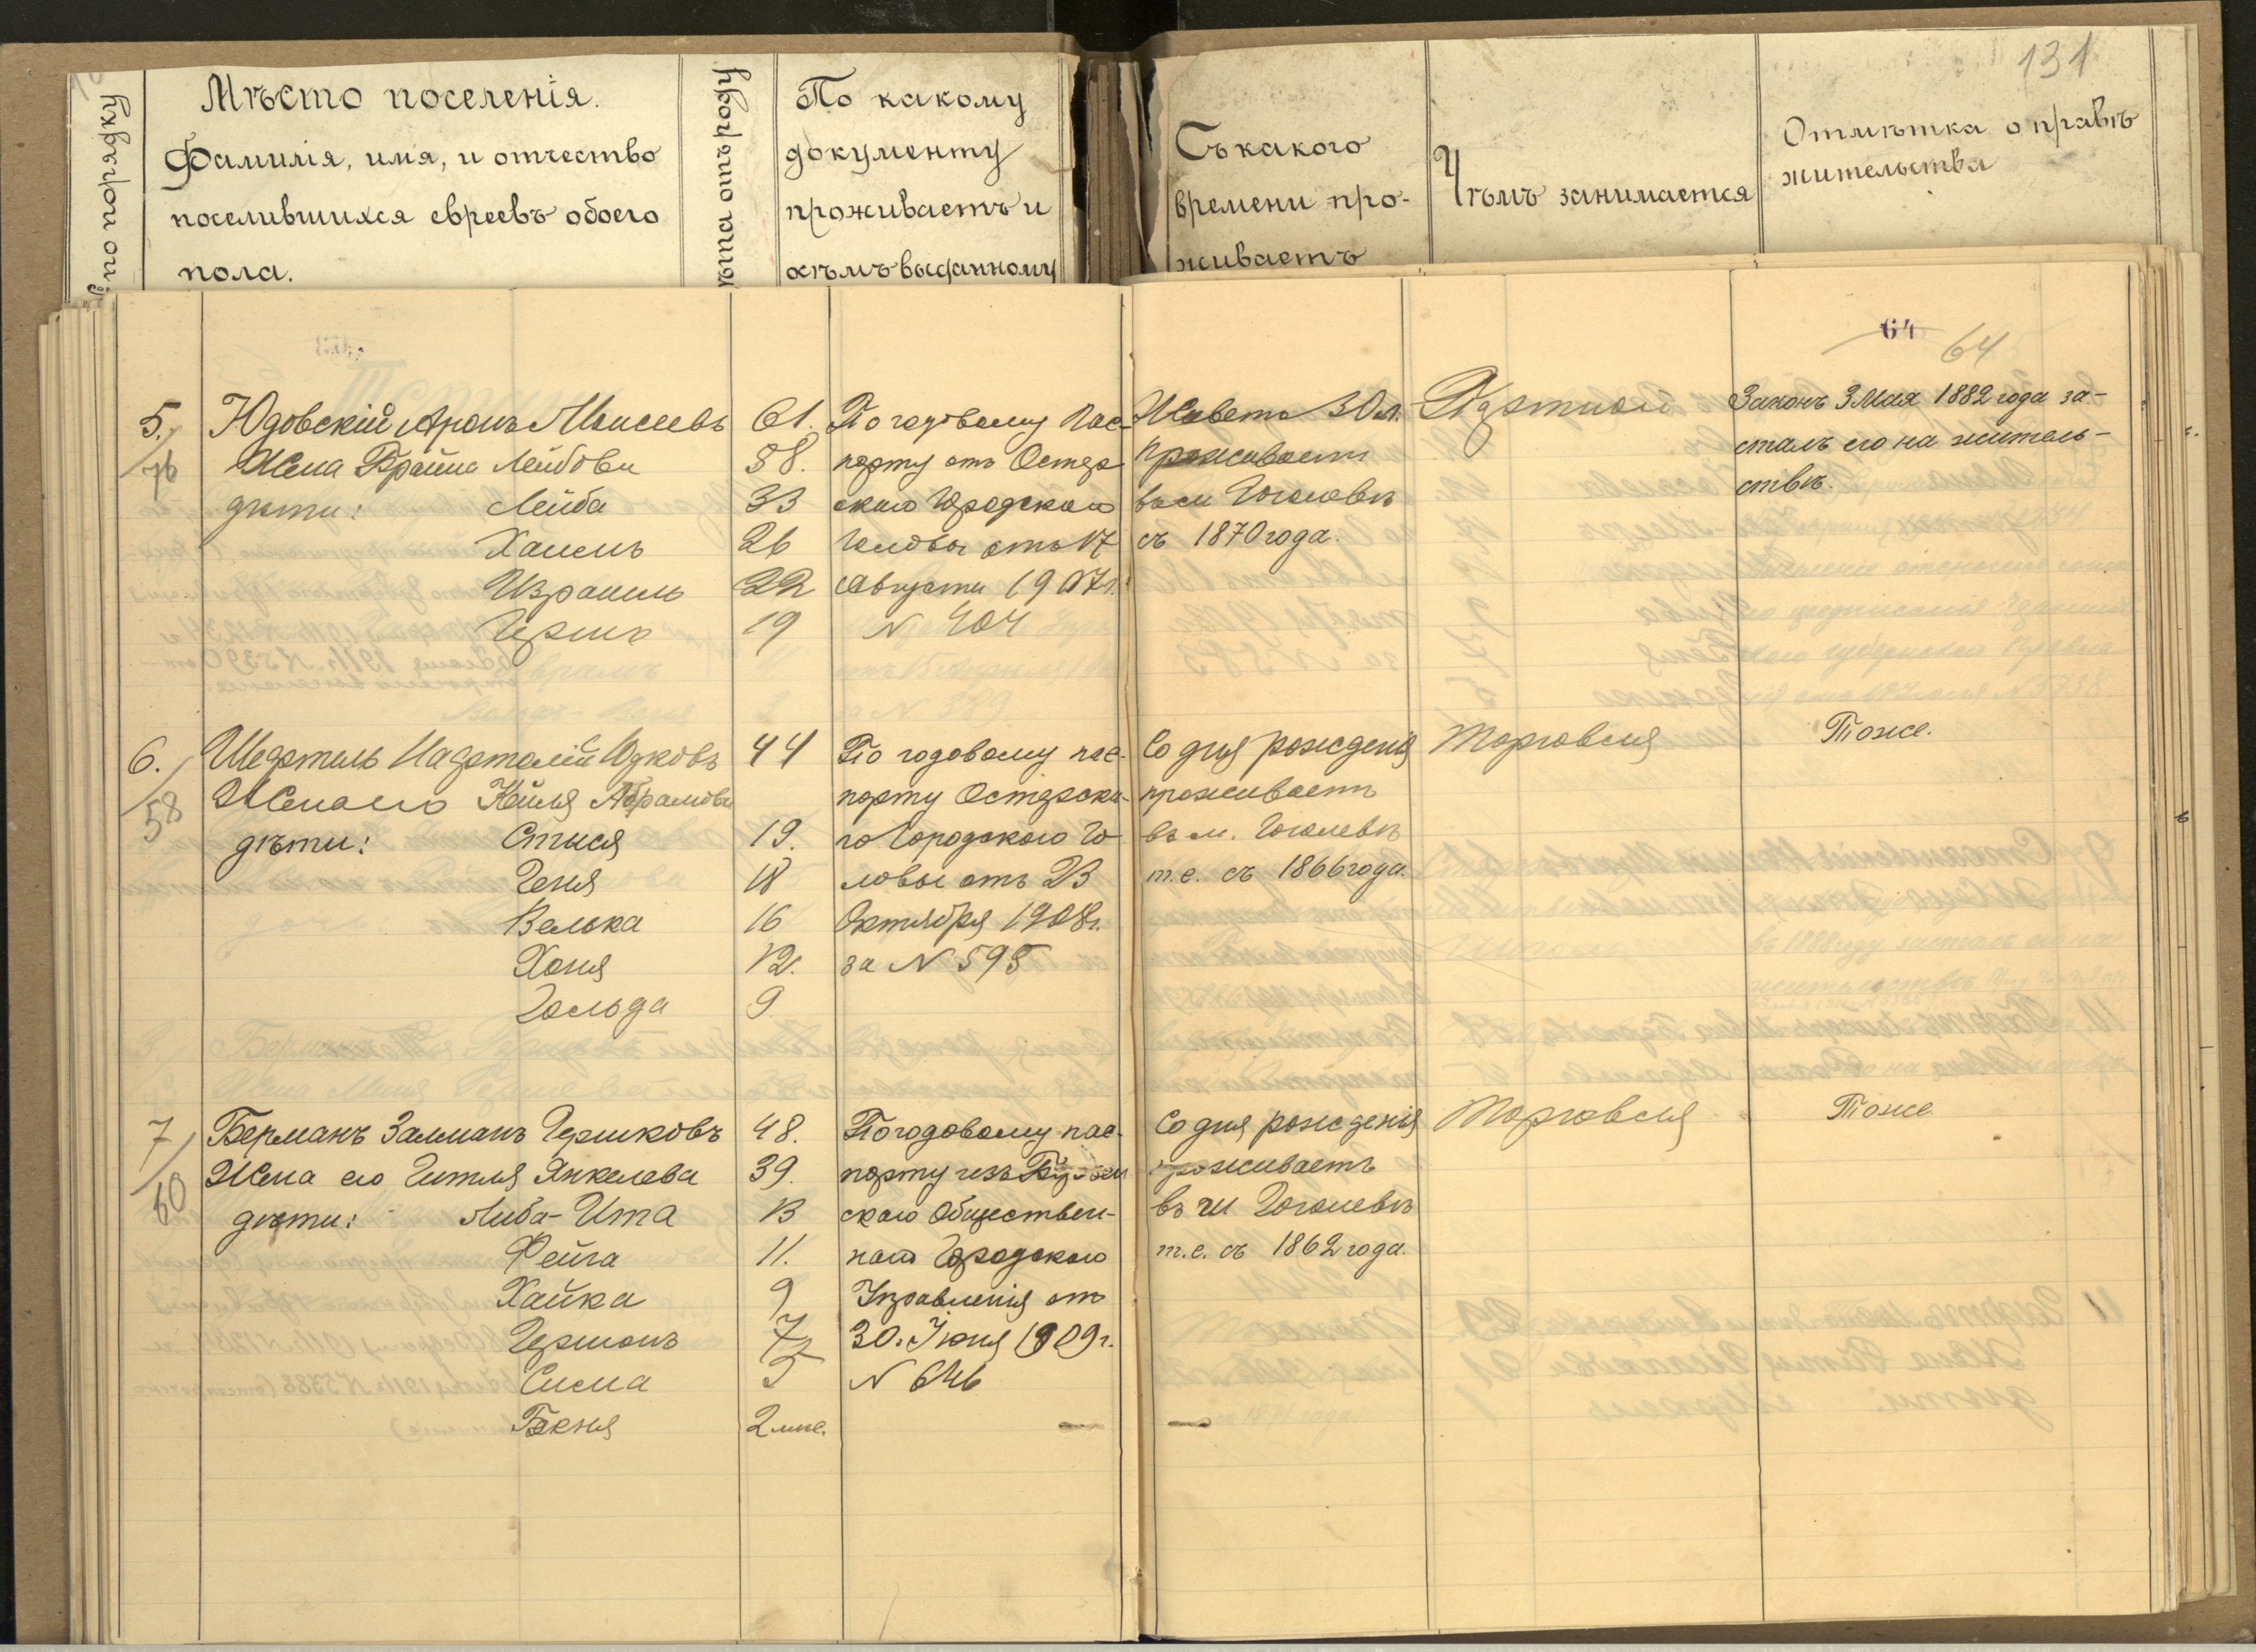 131
по порядку
Мѣсто поселенія.
Фамилія, имя, и отчество
поселившихся евреевъ обоего
пола.
лѣта отъ роду
По какому
документу
проживаетъ и
кѣмъ выданному
Съ какого
времени про-
живаетъ
Чѣмъ занимается
Отмѣтка о правѣ
жительства
64
64
5.
76
Юдовскій Аронъ Моисеевъ
Жена Брайна Лейбова
дѣти: Лейба
Хаимъ
Израиль
Гершъ
61.
58.
33
26
22
19
По годовому пас-
порту отъ Остер
скаго Городского
Головы отъ 17
Августа 1907г.
N 404
Живетъ 30 л.
проживаетъ
въ м Гоголевѣ
съ 1870 года.
Портной
Законъ 3 Мая 1882 года за-
сталъ его на житель-
ствѣ.
6.
58
Шефтель Нафтолій Юдковъ
Жена его Кейля Абрамова
дѣти: Стися
Геня
Велька
Хоня
Гольда
44
19.
18
16
12.
9.
По годовому пас-
порту Остерска-
го Городского Го-
ловы отъ 23
Октября 1908г.
за N 595
Со дня рожденія
проживаетъ
въ м. Гоголевѣ
т.е. съ 1866 года.
Торговля
Тоже.
7
60
Берманъ Залманъ Гершковъ
Жена его Гитля Янкелева
дѣти: Либа-Ита
Фейга
Хайка
Гершонъ
Сима
48.
39.
13
11.
9
7
5
2 мѣс.
По годовому пас-
порту изъ
скаго Обществен-
наго Городского
Управленія отъ
30. Іюня 1909г.
N 646
Со дня рожденія
проживаетъ
въ м Гоголевѣ
т.е. съ 1862 года.
Торговля
Тоже